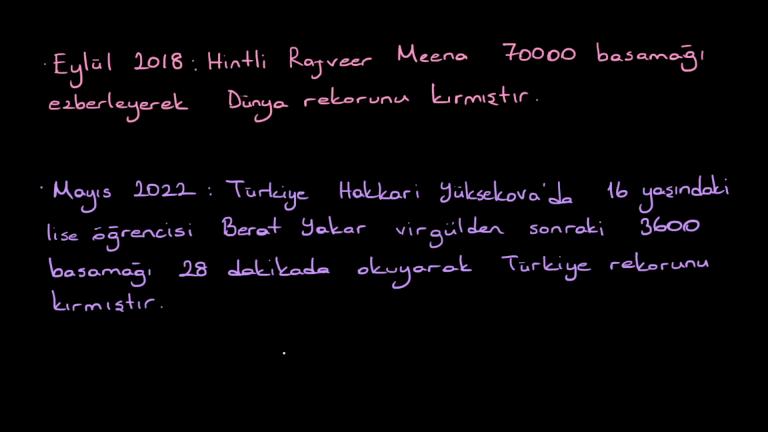 · Eylül 2018 : Hintli Rajveer Meena 70000 basamağı
ezberleyerek Dünya rekorunu kırmıştır.
· Mayıs 2022 : Türkiye Hakkari Yüksekova'da 16 yaşındaki
lise öğrencisi Berat Yakar virgülden sonraki 3600
basamağı 28 dakikada okuyarak Türkiye rekorunu
kırmıştır.